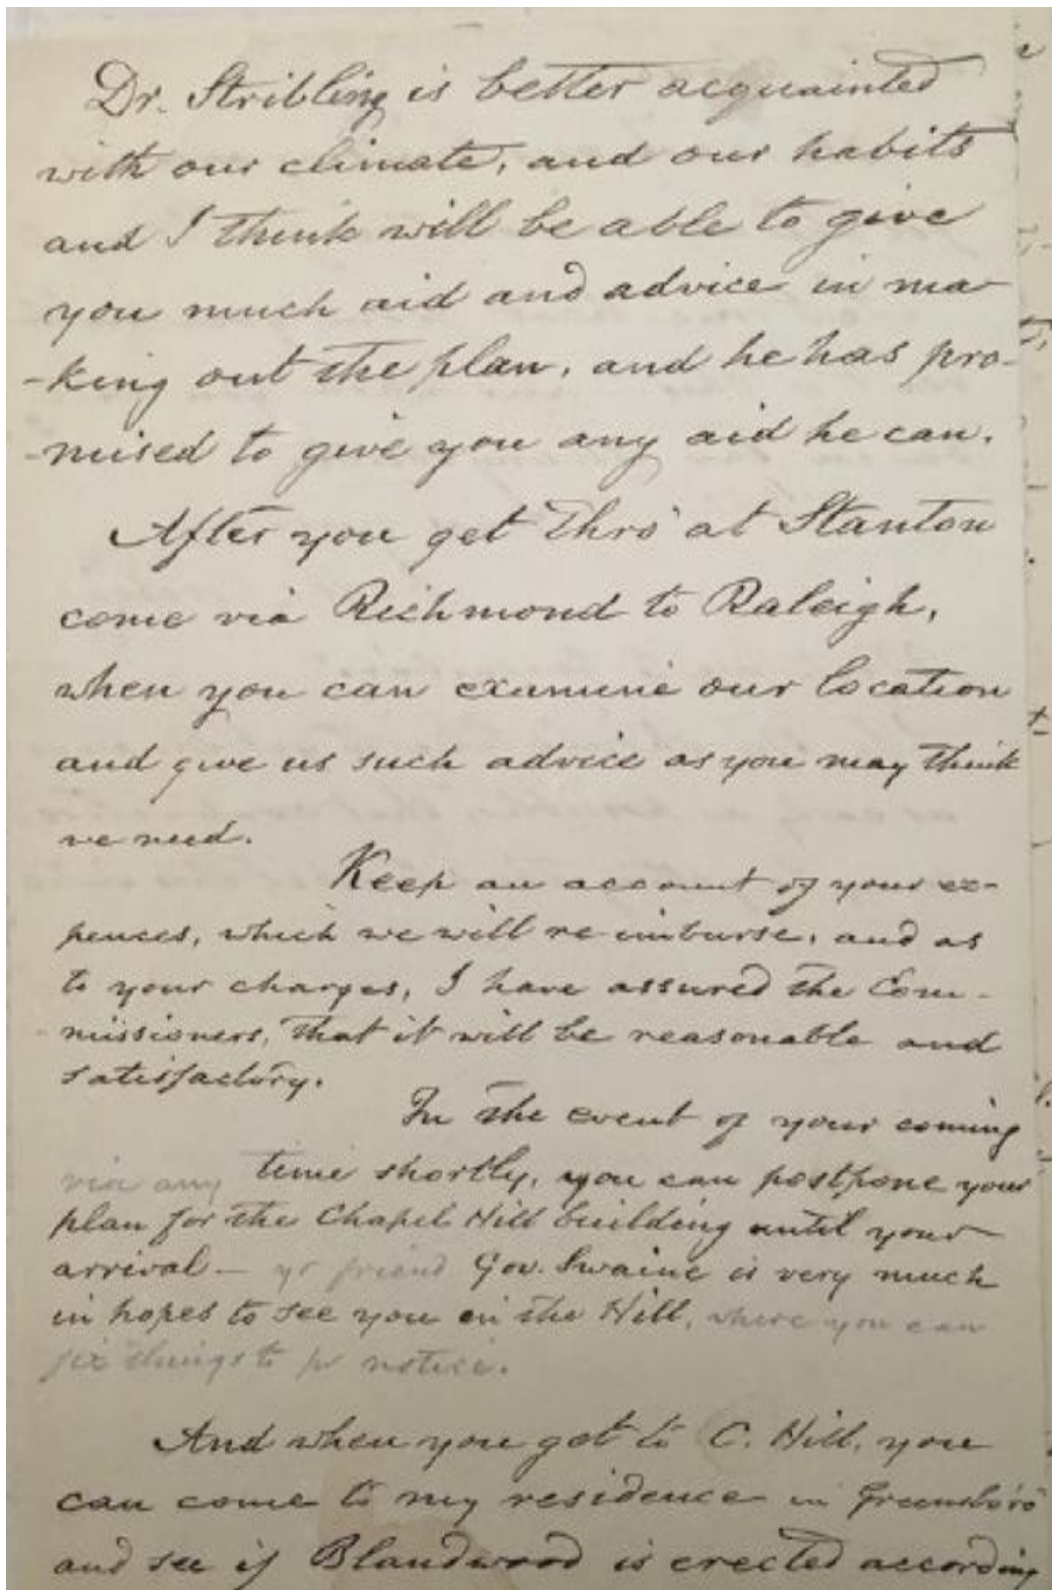 Dr. Stribling is better acquainted
with our climate, and our habits
and I think will be able to give
you much aid and advice in ma-
-king out the plan, and he has pro-
-mised to give you any aid he can.
After you get thro' at Stanton
come via Richmond to Raleigh,
when you can examine our location
and give us such advice as you may think
we need.
Keep an account of your ex-
pences, which we will re imburse, and as
to your charges, I have assured the Com-
-missioners, that it will be reasonable and
satisfactory.
In the event of your coming
via any time shortly, you can postpone your
plan for the Chapel Hill building until your
arrival - yr friend Gov. Swaine is very much
in hopes to see you on the Hill, where you can
fix things to notice.
And when you get to C. Hill, you
can come to my residence in Greensboro
and see if Blandwood is erected according